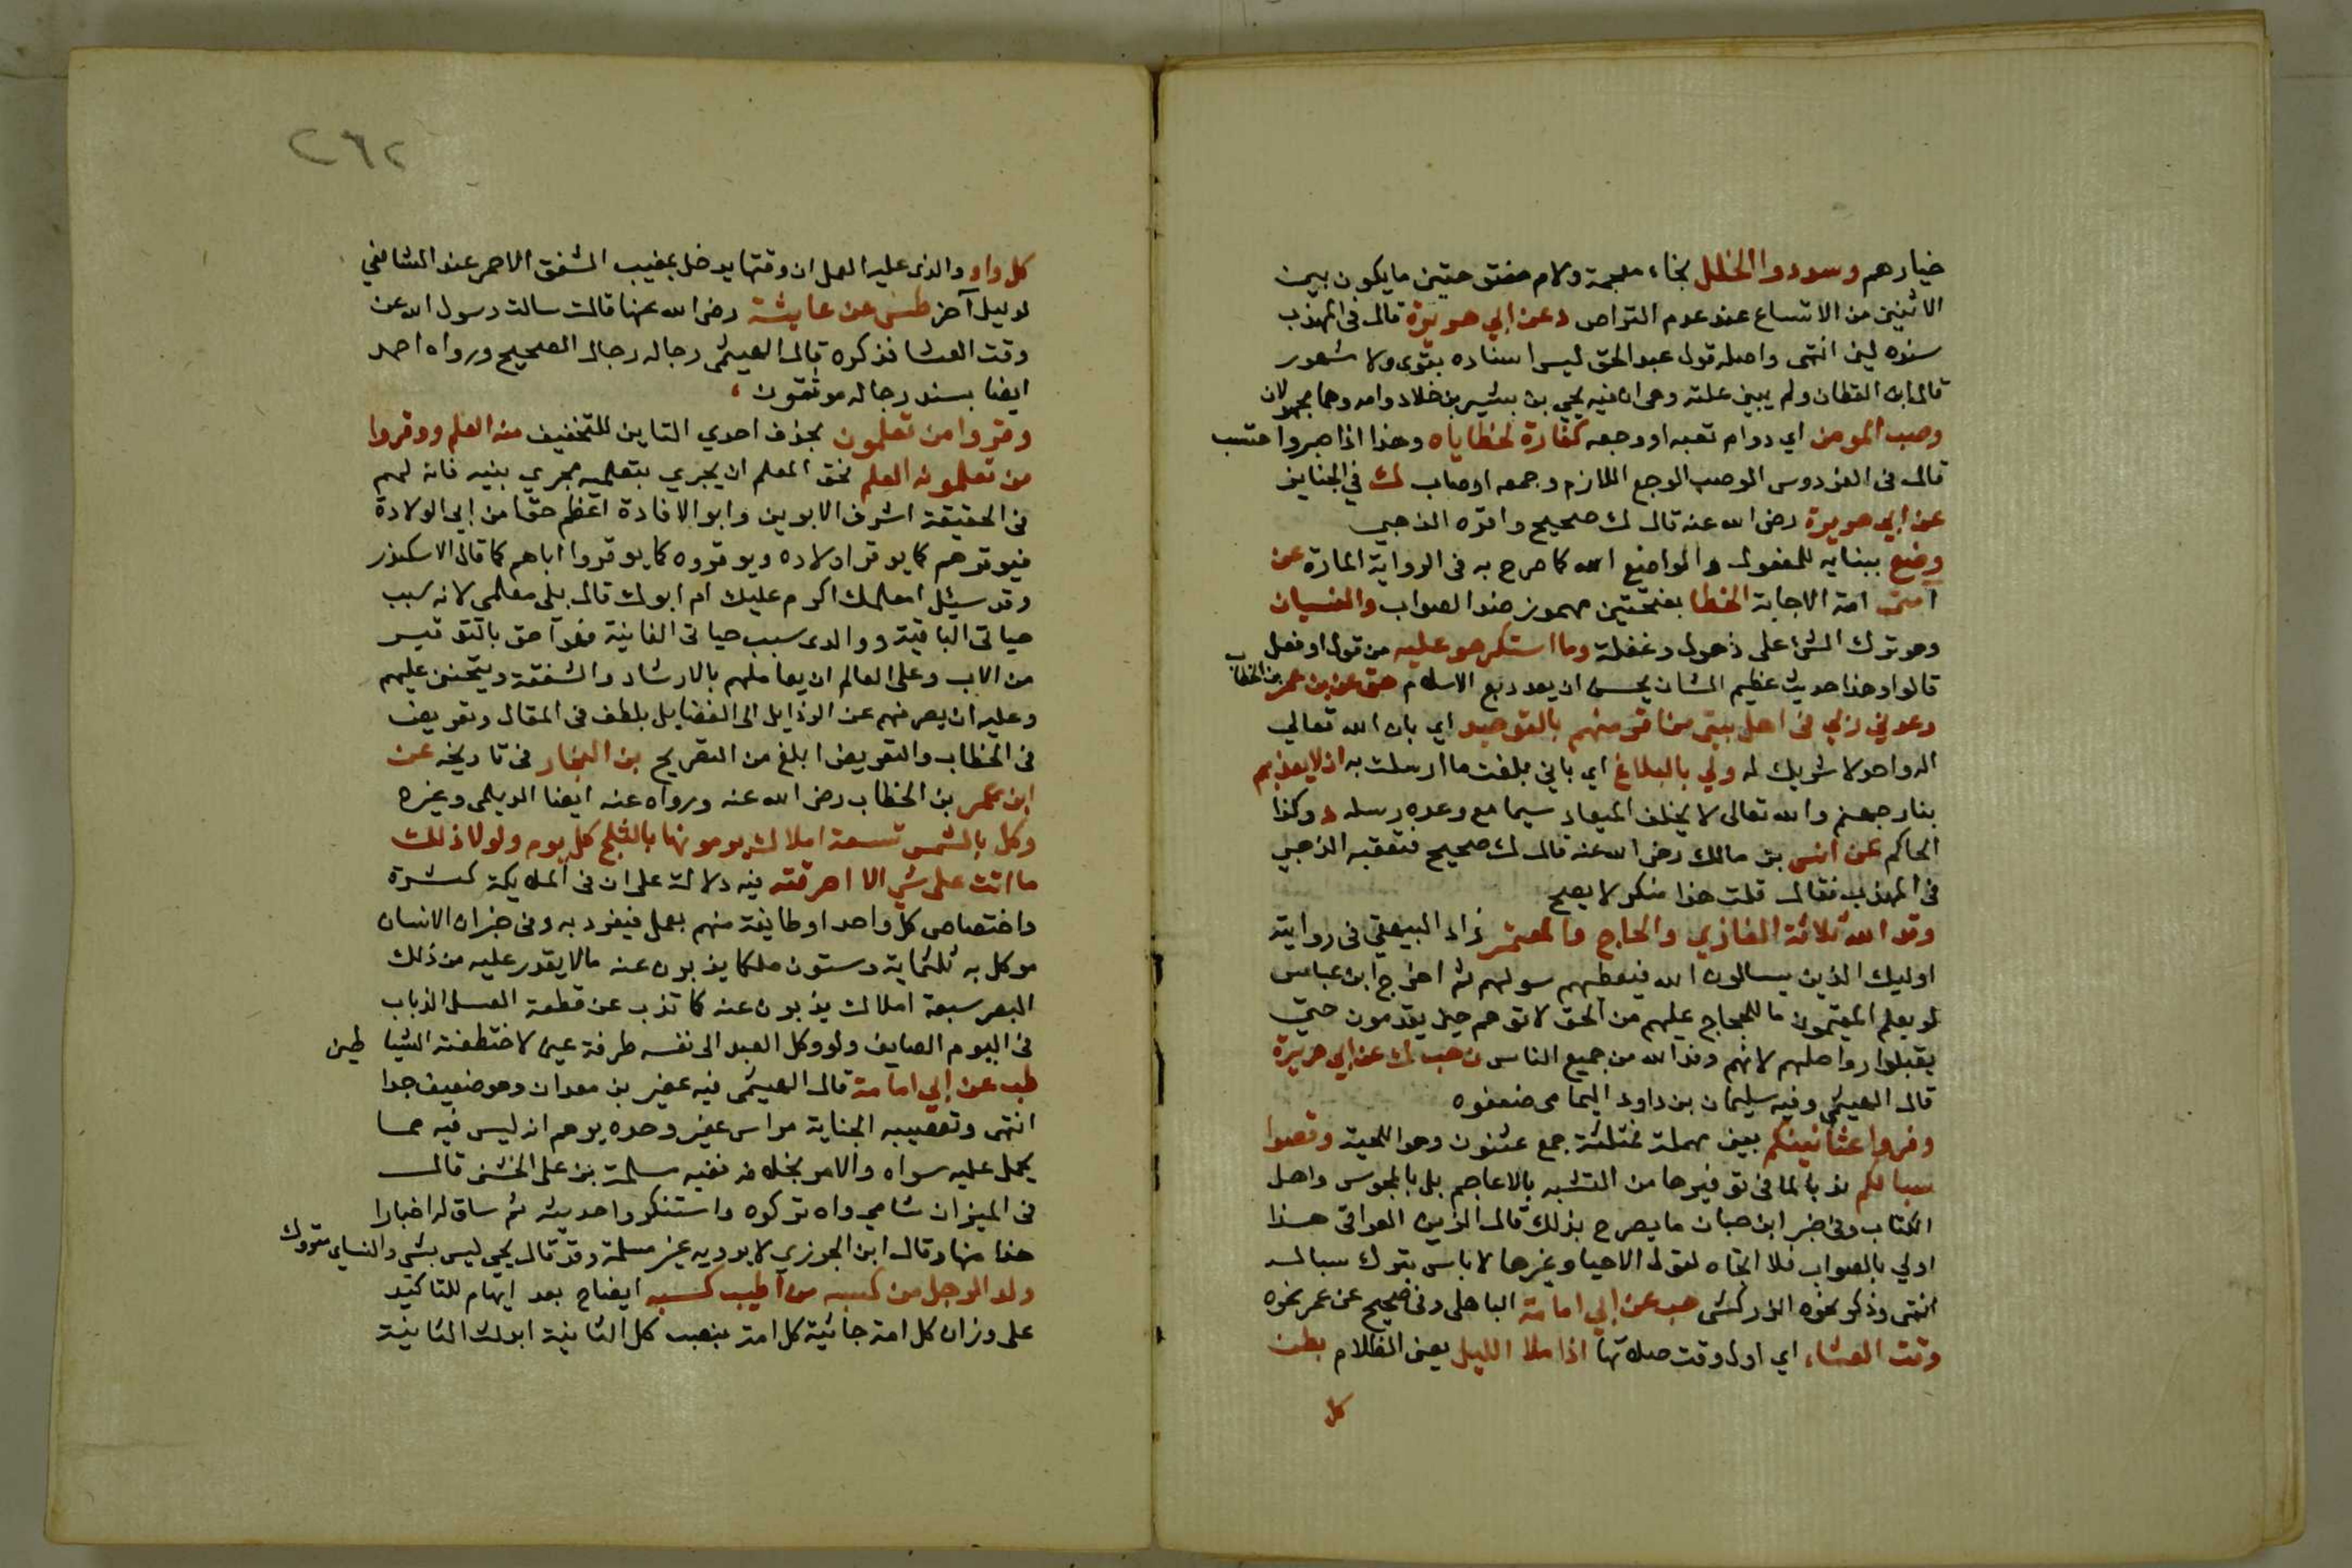 خيارهم وسددوا الخلل بخاء معجمة ولام مفتوحتين ما يكون بين
الاثنين من الاتساع عند عدم التراص د عن ابي هريرة قال في المهذب
سنده لين انتهى واصله قول عبد الحق ليس اسناده بقوى ولا مشهور
قال ابن القطان ولم يبين علته وهي ان فيه يحي بن بشير بن خلاد وامه وهما مجهولان
وصب المومن اي دوام تعبه او وجعه كفارة لخطاياه وهذا اذا صبر واحتسب
قال في الفردوس الوصب الوجع اللازم وجمعه اوصاب ك في الجنايز
عن ابي هريرة رضي الله عنه قال ك صحيح واقره الذهبي
وضع ببنايه للمفعول والواضع الله كما صرح به في الرواية المارة عن
امتى امة الاجابة الخطا بفتحتين مهموز ضد الصواب والنسيان
وهو ترك الشئ على ذهول وغفلة وما استكرهو عليه من قول او فعل
قالوا وهذا حديث عظيم الشان يحسن ان يعد ربع الاسلام هق عن بن عمر بن الخطاب
وعدني ربي في اهل بيتي من اقر منهم بالتوحيد اي بان الله تعالي
اله واحد لا شريك له ولي بالبلاغ اي باني بلغت ما ارسلت به ان لا يعذبهم
بنار جهنم والله تعالى لا يخلف الميعاد سيما مع وعده رسله د وكذا
الحاكم عن انس بن مالك رضي الله عنه قال ك صحيح فتعقبه الذهبي
في المهذب فقال قلت هذا منكر لا يصح
وفد الله ثلاثة الغازي والحاج والمعتمر زاد البيهقي في روايته
اوليك الذين يسالون الله فيعطيهم سولهم ثم اخرج ابن عباس
لو يعلم المقيمون ما للحجاج عليهم من الحق لاتوهم حين يقدمون حتي
يقبلوا رواحلهم لانهم وفد الله من جميع الناس ن حب ك عن ابي هريرة
قال الهيثمي وفيه سليمان بن داود اليمامي ضعفوه
وفروا عثانينكم بعين مهملة فمثلثة جمع عثنون وهو اللحية وقصوا
سبالكم ندبا لما في توفيرها من التشبه بالاعاجم بل بالمجوس واهل
الكتاب وفي خبر ابن حبان ما يصرح بذلك قال الزين العراقي هذا
اولي بالصواب فلا اتجاه لقول الاحيا وغيرها لا باس بترك سباله
انتهى وذكر نحوه الزركشي هب عن ابي امامة الباهلي وفي صحيح عن عمر نحوه
وقت العشاء اي اول وقت صلاتها اذا ملا الليل يعني الظلام بطن
كل
٢٦٢
كل واد والذي عليه العمل ان وقتها يدخل بمغيب الشفق الاحمر عند الشافعي
لدليل آخر طس عن عايشة رضي الله عنها قالت سالت رسول الله عن
وقت العشا فذكره قال الهيثمي رجاله رجال الصحيح ورواه احمد
ايضا بسند رجاله موثقون
وقروا من تعلمون بحذف احدي التاين للتخفيف منه العلم ووقروا
من تعلمونه العلم فحق المعلم ان يجري بتعلمه مجري بنيه فانه لهم
في الحقيقة اشرف الابوين وابو الافادة اعظم حقا من ابي الولادة
فيوقرهم كما يوقر اولاده ويوقروه كما يوقروا اباهم كما قال الاسكندر
وقد سيئل امعلمك اكرم عليك ام ابوك قال بلى معلمي لانه سبب
حياتي الباقية ووالدي سبب حياتي الفانية فهو احق بالتوقير
من الاب وعلى العالم ان يعاملهم بالارشاد والشفقة ويتحنن عليهم
وعليه ان يصرفهم عن الرذايل الى الفضايل بلطف في المقال وتعريض
في الخطاب والتعريض ابلغ من التصريح بن النجار في تاريخه عن
ابن عمر بن الخطاب رضي الله عنه ورواه عنه ايضا الديلمي وغيره
وكل بالشمس تسعة املاك يرمونها بالثلج كل يوم ولولا ذلك
ما اتت على شي الا احرقته فيه دلالة على ان في الملايكة كثرة
واختصاص كل واحد او طايفة منهم بعمل فينفرد به وفي خبر ان الانسان
موكل به ثلثماية وستون ملكا يذبون عنه ما لا يقدر عليه من ذلك
البصر سبعة املاك يذبون عنه كما تذب عن قطعة العسل الذباب
في اليوم الصايف ولو وكل العبد الى نفسه طرفة عين لاختطفته الشياطين
طب عن ابي امامة قال الهيثمي فيه عفير بن معدان وهو ضعيف جدا
انتهى وتعصيبه الجناية براس عفير وحده يوهم انه ليس فيه مما
يحمل عليه سواه والامر بخلافه ففيه سلمة بن علي الخشني قال
في الميزان شامي واه تركوه واستنكروا حديثه ثم ساق له اخبارا
هذا منها وقال ابن الجوزي لا يرويه غير مسلمة وقد قال يحي ليس بشي والنساى متروك
ولد الرجل من كسبه من اطيب كسبه ايضاح بعد ايهام للتاكيد
على وزان كل امة جاثية كل امة بنصب كل الثانية ابدلت الثانية